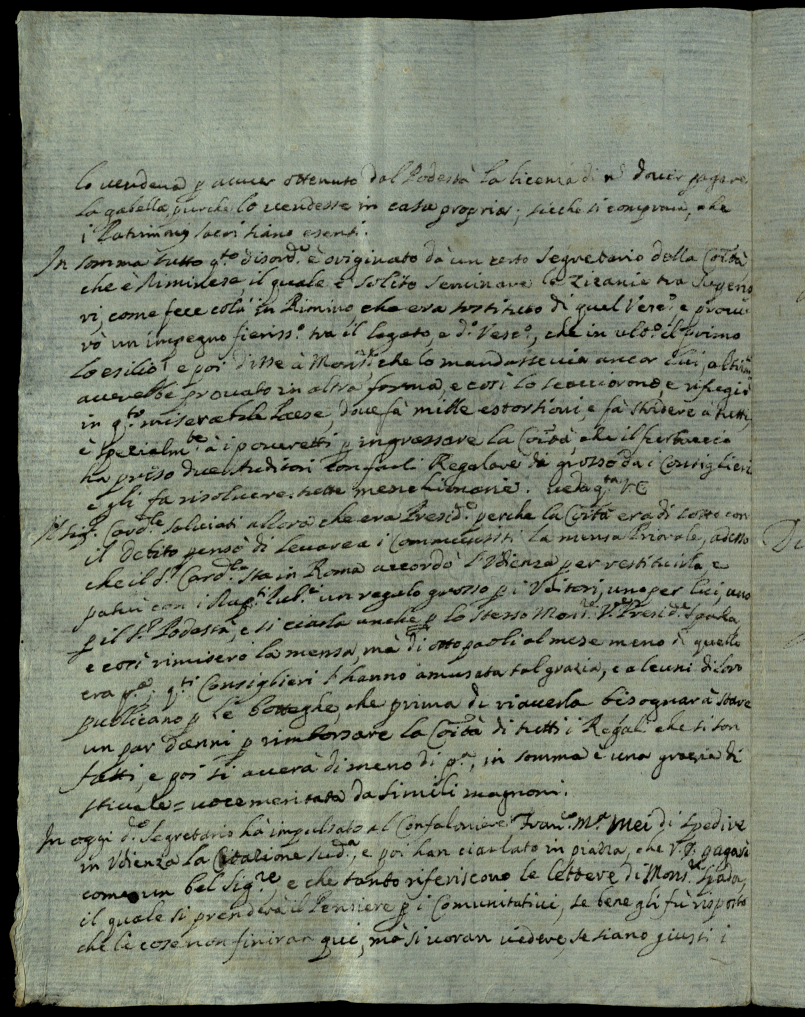 lo vendeva p aveer ottenuto dal Podestà la licenza di nō dover pagare
la gabella, purche lo vendesse in casa propria; sicche si comprava, che
i Patrimonj sacri siano esenti.
In somma tutto q.to disord.e è originato da un certo Segretario della Coītà
che è Riminese, il quale è solito seminare la Zizania tra Superio
ri, come fece colà in Rimino che era sostituto di quel Vesc.o e
un impegno fieriss.o tra il Legato, e d.o Vesc.o, che in ult.o il primo
lo esiliò e poi disse à Mons.r che lo mandasse via ancor lui,
averebbe provato in altra forma, e così lo scacciorono, e rifugiò
in q.to miserabile Paese, dove fà mille estortioni, e fà stridere à tutti,
è specialm.te à i poveretti p ingrossare la Coītà, che il
ha preso due Auditori con farli Regalare di grosso da i Consiglieri
e gli fa risolvere tutte
Il Sig.r Card.le Salviati allora che era Presid.e perche la Coītà era di sotto con
il debito pensò di levare a i la mensa Priorale, adesso
che il S.r Card.le sta in Roma accordò l'Udienza per restituirla, e
un regalo grosso p i Uditori, uno per lui, uno
p il S.r Podestà, e si ciarla anche p lo stesso Mons.r V. Presid.e Spada
e così rimisero la mensa, mà di otto paoli al mese meno di quello
era p.a, q.ti Consiglieri l'hanno avuta tal grazia, e alcuni di loro
publicano p le botteghe, che prima di riaverla bisognarà stare
un par d'anni p rimborsare la Coītà di tutti i Regali che si son
fatti, e poi si averà di meno di p.a, in somma è una grazia di
stivale = voce meritata da simili magnoni.
In oggi d.o Segretario hà impulsato al Confaloniere Fran.co M.a Mei di spedire
in Udienza la Citazione sud.a, e poi han ciarlato in piazza, che V.S. pagarà
come un bel Sig.re e che tanto riferiscono le lettere di Mons.r Spada,
il quale si prenderà il Pensiere p i Comunitativi, se bene gli fù risposto
che le cose non finiran qui, mà si voran vedere, se siano giusti i